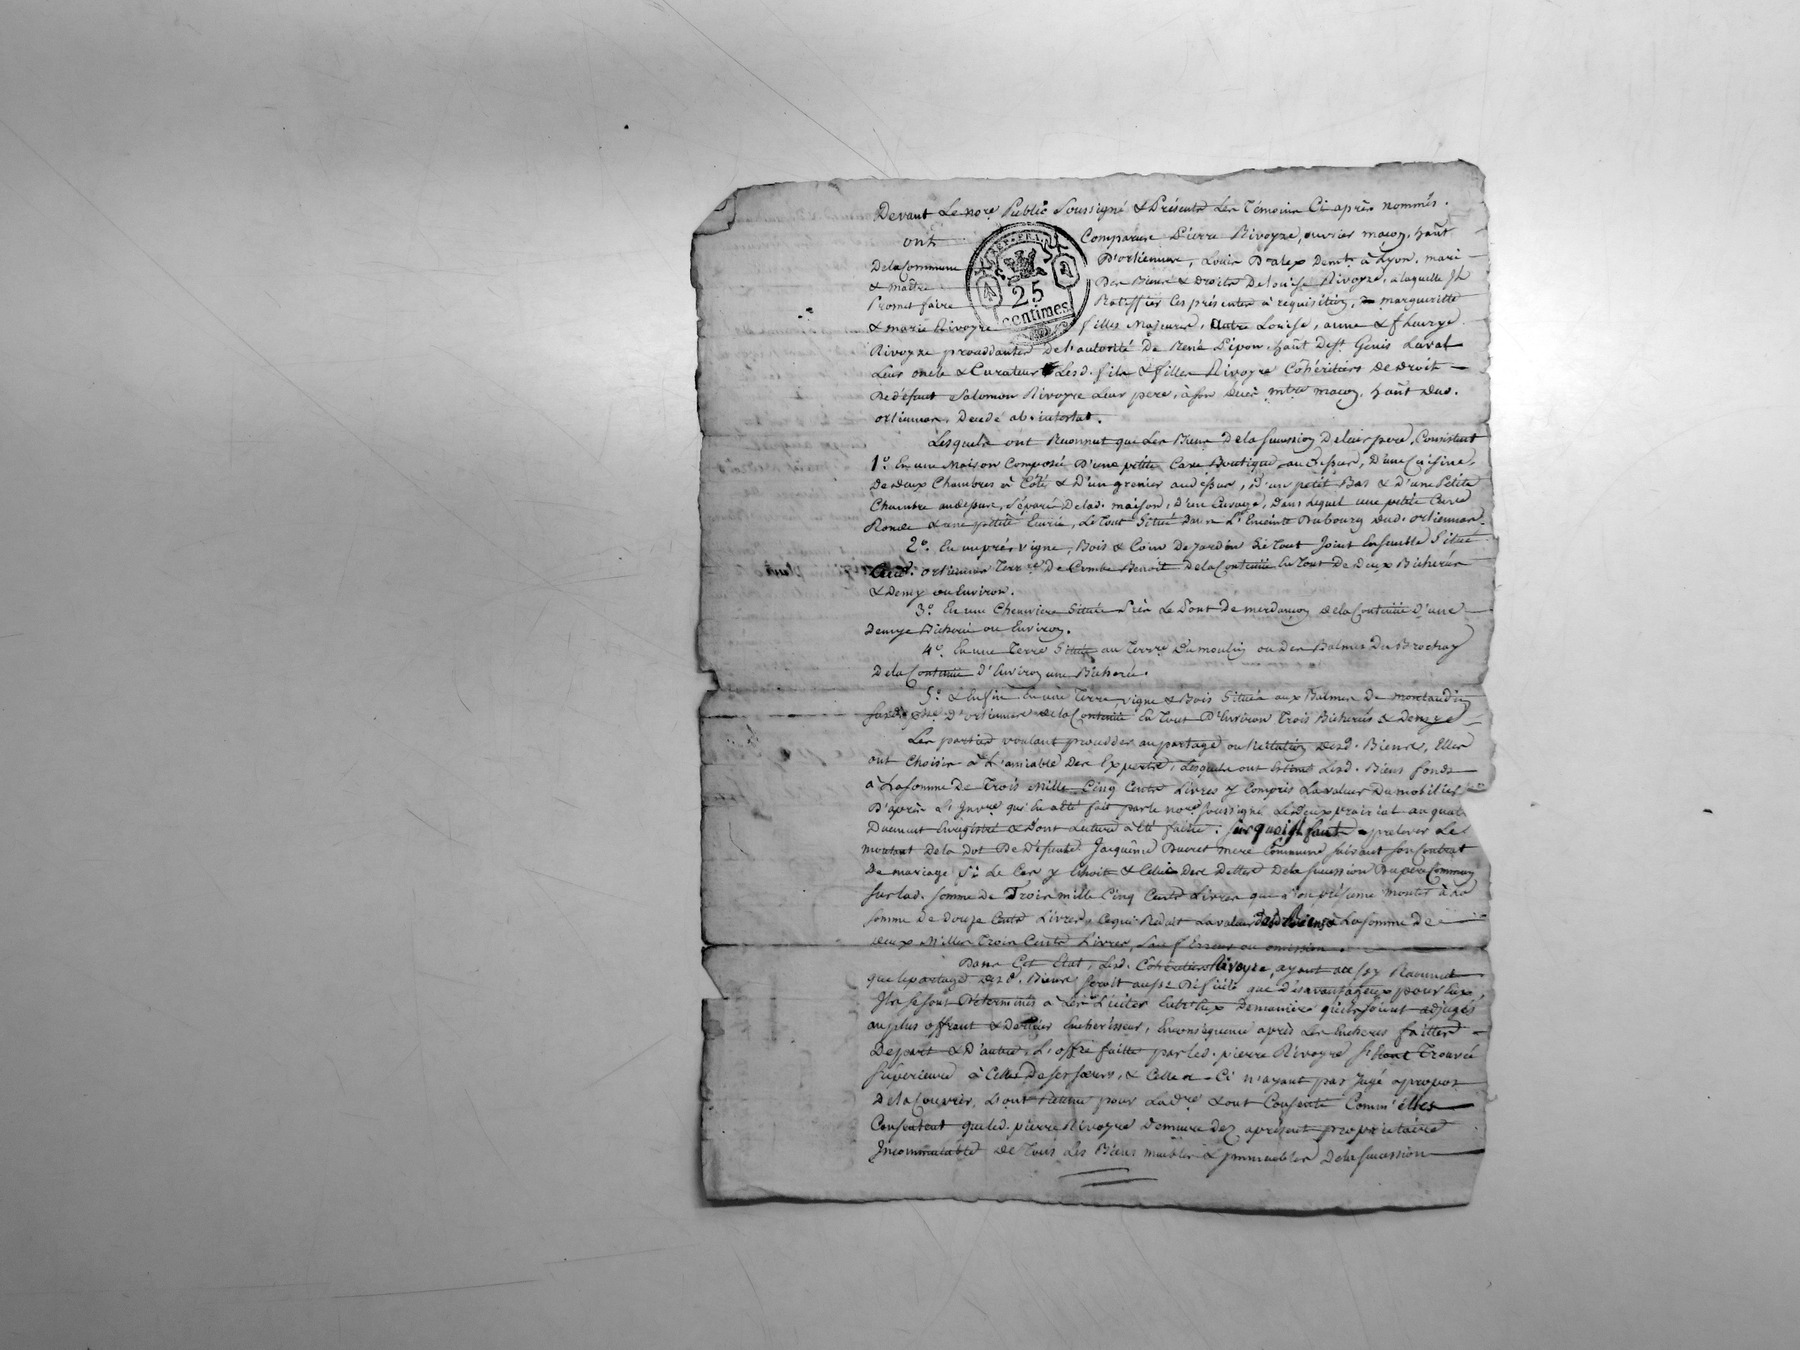 Devant Le nore Public Soussigné & Présents Les Témoins Ci après nommés.
ont Comparus Pierre Rivoyre, ouvrier maçon, hañt
De la Commune D'orliennas, Louis D'alex Demt. à Lyon, mari
& maître Des Biens & Droits De Louise Rivoyre, a laquelle Il
Promet faire Ratiffier Ces présentes a requisition, margueritte
& marie Rivoyre filles Majeures, Autre Louise, anne & fleurye
REP. FRA.
25
centimes
Rivoyre proceddantes De l'autorité De René Pipon hañt De St. Genis Laval
Leur oncle & Curateur Lesd. fils & filles Rivoyre Cohéritiers De Droit
De défunt Salomon Rivoyre Leur pere, à son decès mtre maçon, hañt Dud.
orliennas, Decedé ab-intestat.
Lesquels ont Reconnut que Les Biens De la Succession De leur pere, Consistent
1°. En une Maison Composée D'une petite Cave Boutique, au dessus, D'une Cuisine,
De deux Chambres à Côté & D'un grenier au dessus, D'un petit Bas & d'une Petite
Chambre au dessus, Séparé De lad. maison, D'un Cuvage, Dans Lequel une petite Cuve
Ronde & une petite Ecurie, Le Tout Situé Dans L'Enceinte Du bourg dud. orliennas
2°. En un pré, vigne, Bois & Coin De Jardin Le Tout Joint Ensemble Situé
aud. orliennas Terre De Combe Benoit De la Contenue En Tout De Deux Bicherées
& Demy ou Environ.
3°. En une Cheneviere Située Près Le Pont De merdançon De la Contenue D'une
Demye Bicherée ou Environ.
4°. En une Terre Située au Terre Du moulin ou Des Balmes Du Brochay
De la Contenue D'Environ une Bicherée.
5°. & Enfin En une Terre, vigne & Bois Située aux Balmes De montaudin
Sur D'orliennas De la Contenue En Tout D'Environ Trois Bicherées & Demye
Les parties voulant procedder au partage ou Licitation Desd. Biens, Elles
ont Choisis à L'amiable Des Experts, Lesquels ont Estimé Lesd. Biens fonds
à La Somme De Trois Mille Cinq Cents Livres y Compris La valeur Du mobilier
D'après L'Invre. qui En a été fait par le nore soussigné Le Deux prairial an quatre
Duement Enregistré & Dont Lecture à Eté faite. Sur quoi il faut prelever Le
montant De la Dot De Défunte Jacqueme Ducret mere Commune suivant son Contrat
De mariage Si Le Cas y Echoit & Celui Des Dettes De la Succession Du pere Commun
Sur lad. somme de Trois mille Cinq Cents Livres que l'on présume monter à La
somme De Douze Cents Livres, Ce qui Reduit La valeur Desd. Biens à La somme De
Deux Milles Trois Cents Livres, Sauf Erreur ou omission.
Dans Cet Etat, Lesd. Cohéritiers Rivoyre, ayant aussy Reconnut
que le partage Desd. Biens Seroit aussi Difficile que Désavantageux pour Eux,
Ils se sont Déterminés à Les Liciter Entr'Eux De maniere qu'ils soient adjugés
au plus offrant & Dernier Encherisseur, En conséquence après Les Encheres faittes
De part & D'autre, L'offre faitte par led. pierre Rivoyre s'étant Trouvée
Supérieure à Celles De ses sœurs, & Celles-Ci n'ayant pas Jugé apropos
De la Couvrir, L'ont Retenue pour La dre. & ont Consenti Comm'elles
Consentent que led. pierre Rivoyre Demeure dez apresent proprietaire
Incommutable De Tous Les Biens meubles & Immeubles De la Succession